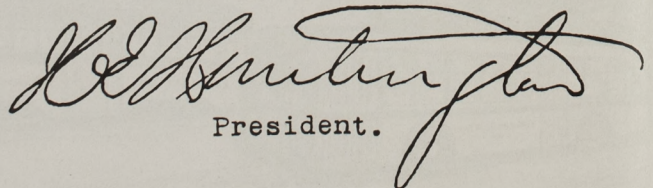 H E Huntington
President.